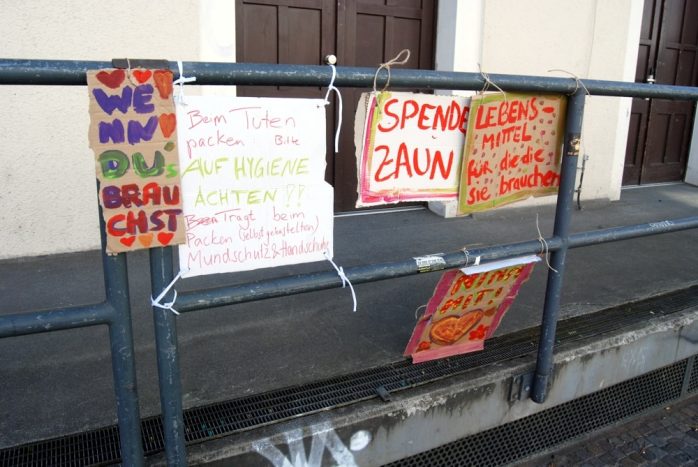 WE
NN
DU'S
BRAU
CHST
Beim Tüten
packen Bitte
AUF HYGIENE
ACHTEN !!
Tragt beim
Packen (selbst gebastelten)
Mundschutz & Handschuhe
SPENDE
ZAUN
LEBENS-
MITTEL
für die die
sie brauchen